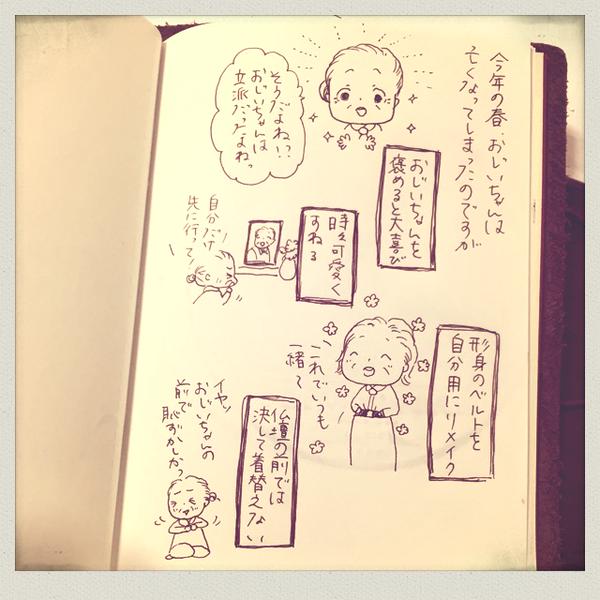 今年の春、おじいちゃんは
亡くなってしまったのですが
おじいちゃんを
褒めると大喜び
そうだよねっ!!
おじいちゃんは
立派だったよねっ
時々可愛く
すねる
自分だけ
先に行って!
形身のベルトを
自分用にリメイク
これでいつも
一緒ね
仏壇の前では
決して着替えない
イヤッ
おじいちゃんの
前で
恥ずかしかっ